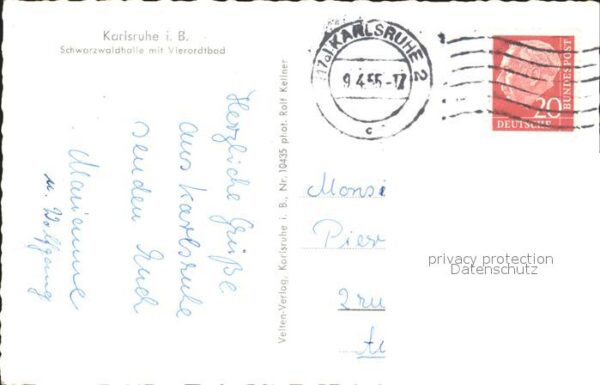 Karlsruhe i. B.
Schwarzwaldhalle mit Vierordtbad
Herzliche Grüße
aus Karlsruhe
senden Euch
Marianne
u. Wolfgang
Velten-Verlag, Karlsruhe i. B., Nr. 10435 phot. Rolf Kellner
(17a) KARLSRUHE 2
9.4.56-17
c
20
DEUTSCHE
BUNDESPOST
Monsi
Pier
2 ru
privacy protection
Datenschutz